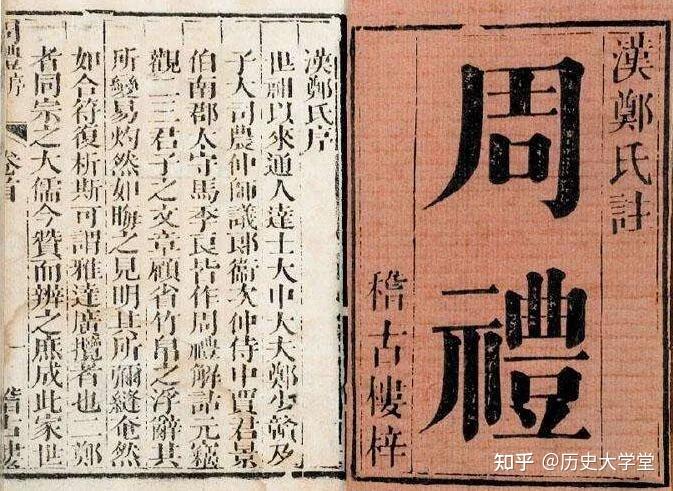 漢鄭氏註
周禮
稽古樓梓
漢鄭氏序
世祖以來通人達士大中大夫鄭少贛及
子大司農仲師議郎衛次仲侍中賈君景
伯南郡太守馬季長皆作周禮解詁元竊
觀二三君子之文章顧省竹帛之浮辭其
所變易灼然如晦之見明其所彌縫奄然
如合符復析斯可謂雅達廣攬者也二鄭
者同宗之大儒今贊而辨之庶成此家世
周禮序 卷首 一 稽古樓
知乎 @历史大学堂